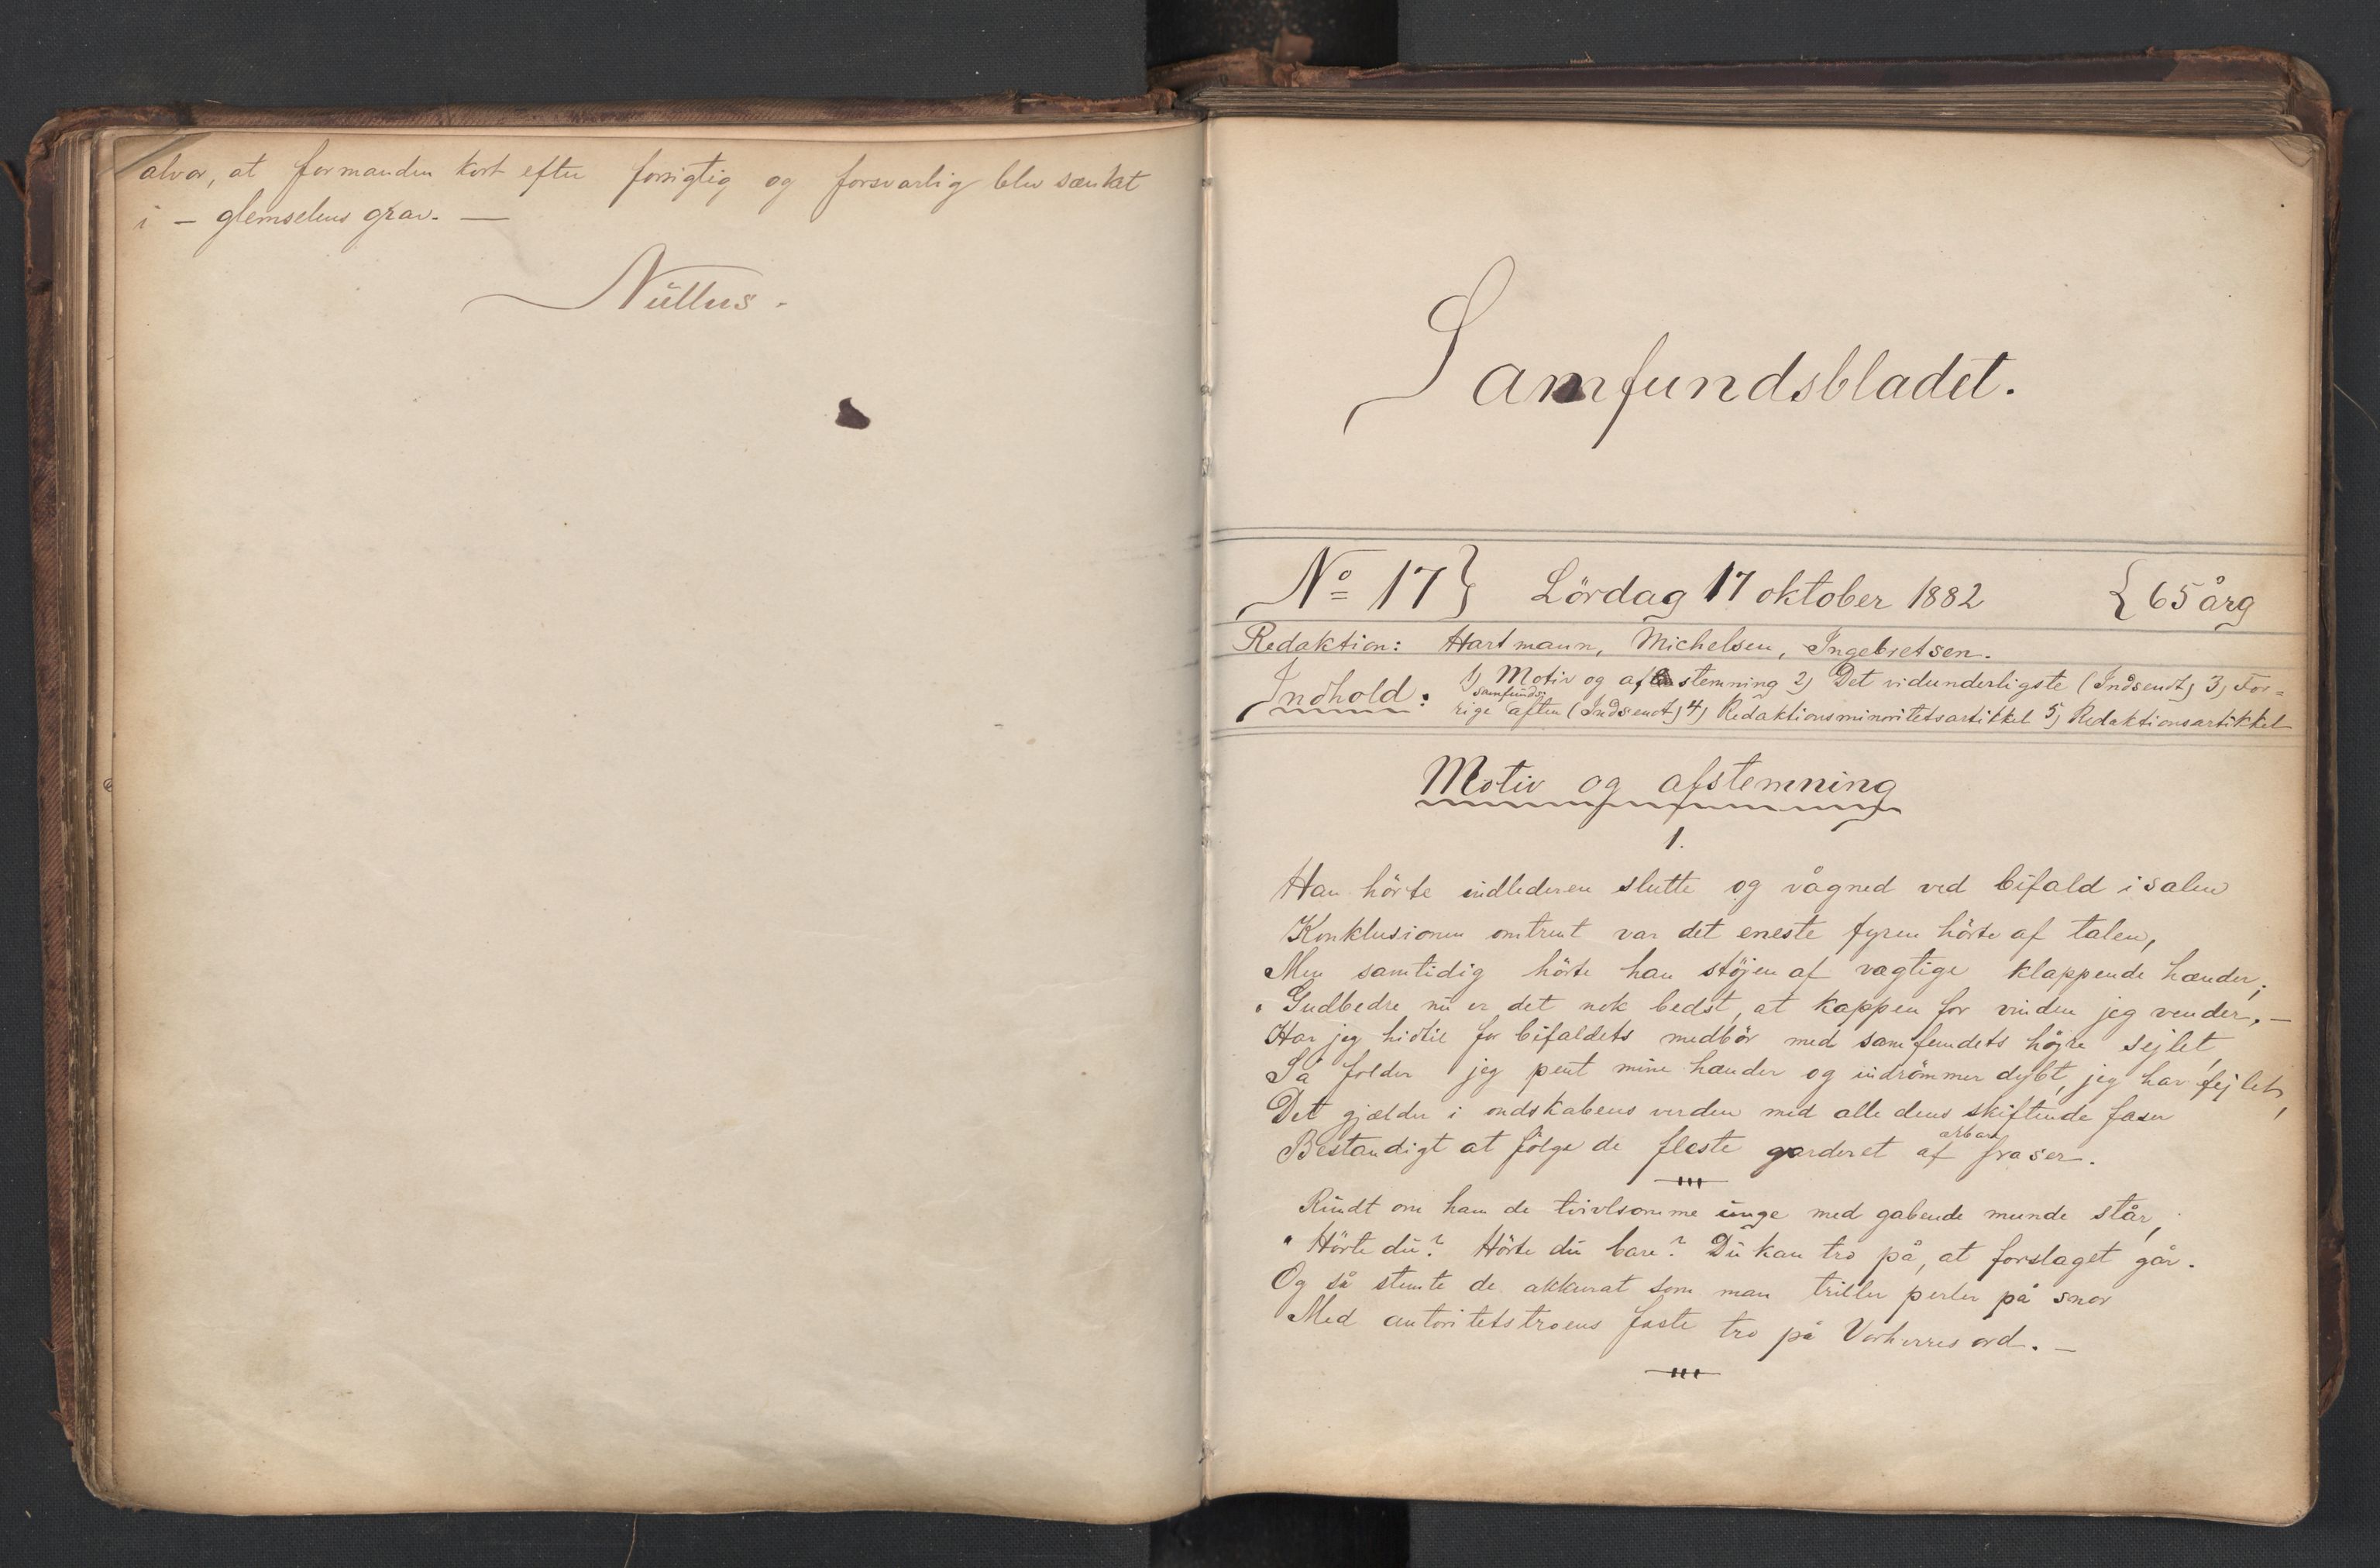 alvor, at formanden kort efter forsigtig og forsvarlig blev sænket
i – glemselens grav. —
Nüllus.
Samfundsbladet.
No 17} Lördag 17 oktober 1882 {65 årg
Redaktion: Hartmann, Michelsen, Ingebretsen.
Indhold: 1) Motiv og afstemning 2) Det vidunderligste (Indsendt) 3) For=
rige samfunds aften (Indsendt) 4) Redaktionsminoritetsartikkel 5) Redaktionsartikkel
Motiv og afstemning
1.
Han hörte indlederen slutte og vågned ved bifald i salen
Konklusionen omtrent var det eneste fyren hörte af talen,
Men samtidig hörte han stöjen af vægtige klappende hænder;
"Gudbedre nu er det nok bedst, at kappen for vinden jeg vender. —
Har jeg hidtil for bifaldets medbör med samfundets höjre sejlet,
Så folder jeg pent mine hænder og indrömmer dybt, jeg har fejlet,
Det gjælder i ondskabens verden med alle dens skiftende faser
Bestandigt at fölge de fleste garderet af fraser.
Rundt om ham de tvivlsomme unge med gabende munde står,
"Hörte du? Hörte du bare? Du kan tro på, at forslaget går.
Og så stemte de akkurat som man triller perler på snor
Med autoritetstroens faste tro på Vorherres ord. —